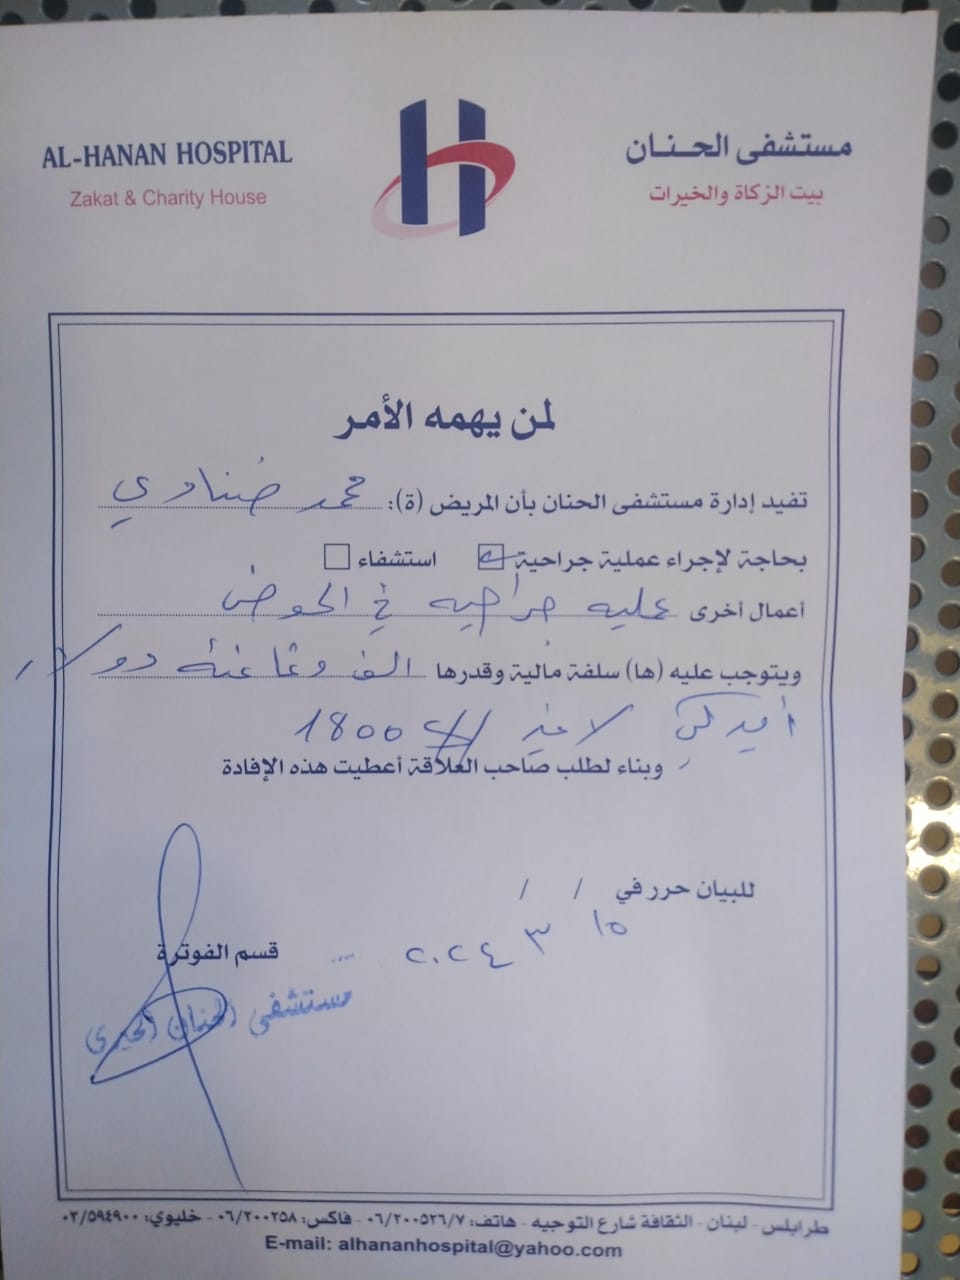 مستشفى الحنان
بيت الزكاة والخيرات
AL-HANAN HOSPITAL
Zakat & Charity House
لمن يهمه الأمر
تفيد إدارة مستشفى الحنان بأن المريض (ة): محمد ضناوي
بحاجة لإجراء عملية جراحية استشفاء
أعمال أخرى عمليه جراحيه في الحوض
ويتوجب عليه (ها) سلفة مالية وقدرها الف وثمانمئة دولار
أميركي لا غير 1800
وبناء لطلب صاحب العلاقة أعطيت هذه الإفادة
للبيان حرر في / /
١٥ ٣ ٢٠٢٤
قسم الفوترة
مستشفى الحنان الخيري
طرابلس - لبنان - الثقافة شارع التوجيه - هاتف: ٠٦/٢٠٠٥٢٦/٧ - فاكس: ٠٦/٢٠٠٢٥٨ - خليوي: ٠٣/٥٩٤٩٠٠
E-mail: alhananhospital@yahoo.com